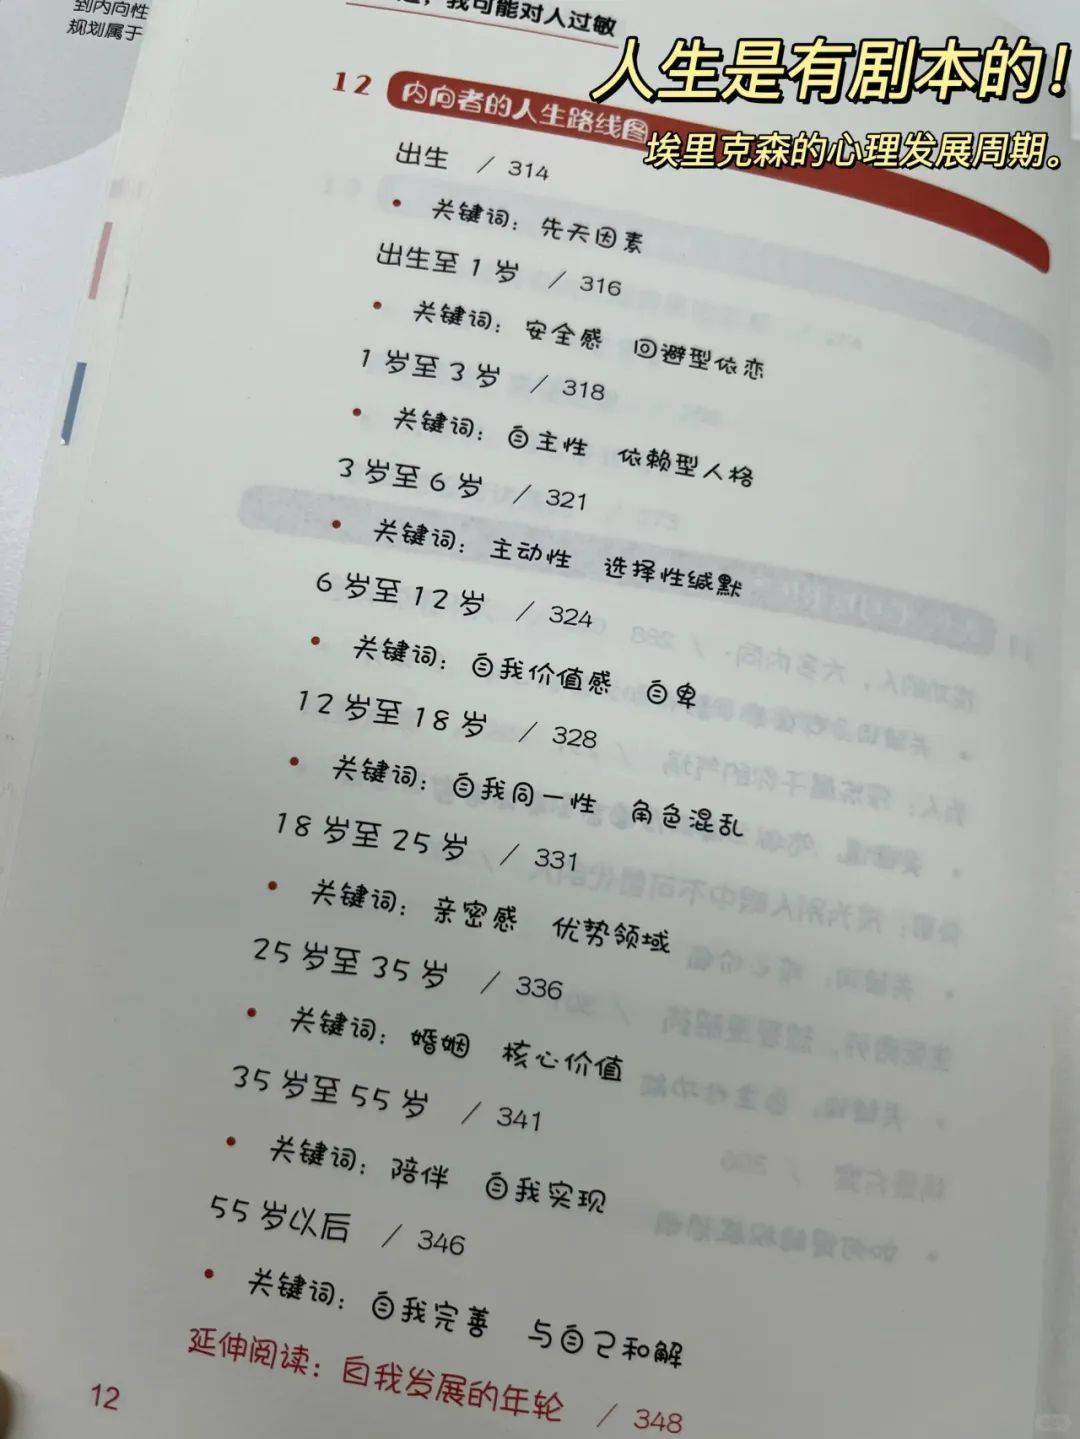 到内向性
规划属于
我可能对人过敏
人生是有剧本的！
埃里克森的心理发展周期。
12 内向者的人生路线图
出生 / 314
• 关键词：先天因素
出生至 1 岁 / 316
• 关键词：安全感 回避型依恋
1 岁至 3 岁 / 318
• 关键词：自主性 依赖型人格
3 岁至 6 岁 / 321
• 关键词：主动性 选择性缄默
6 岁至 12 岁 / 324
• 关键词：自我价值感 自卑
12 岁至 18 岁 / 328
• 关键词：自我同一性 角色混乱
18 岁至 25 岁 / 331
• 关键词：亲密感 优势领域
25 岁至 35 岁 / 336
• 关键词：婚姻 核心价值
35 岁至 55 岁 / 341
• 关键词：陪伴 自我实现
55 岁以后 / 346
• 关键词：自我完善 与自己和解
延伸阅读：自我发展的年轮 / 348
12